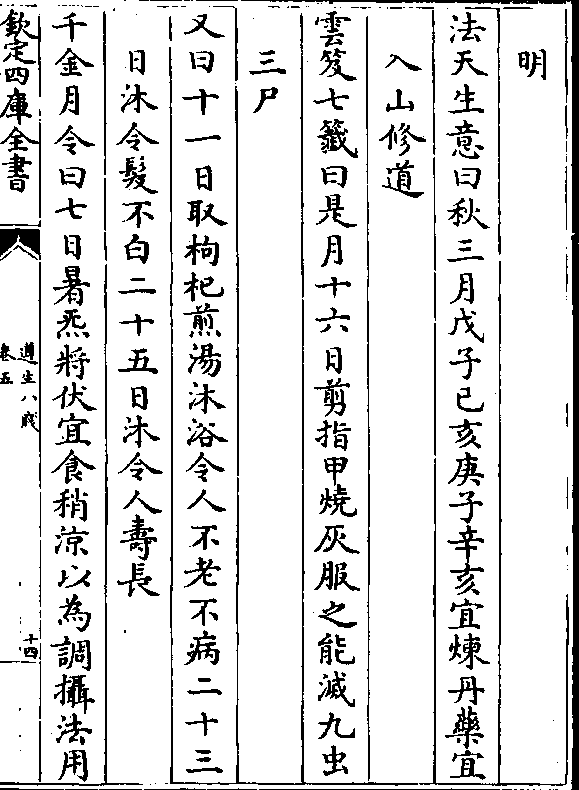 明
法天生意曰秋三月戊子己亥庚子辛亥宜煉丹藥宜
入山修道
雲笈七籤曰是月十六日剪指甲燒灰服之能滅九虫
三尸
又曰十一日取枸杞煎湯沐浴令人不老不病二十三
日沐令髮不白二十五日沐令人壽長
千金月令曰七日暑炁將伏宜食稍涼以為調攝法用
欽定四庫全書
遵生八牋
卷五
十四